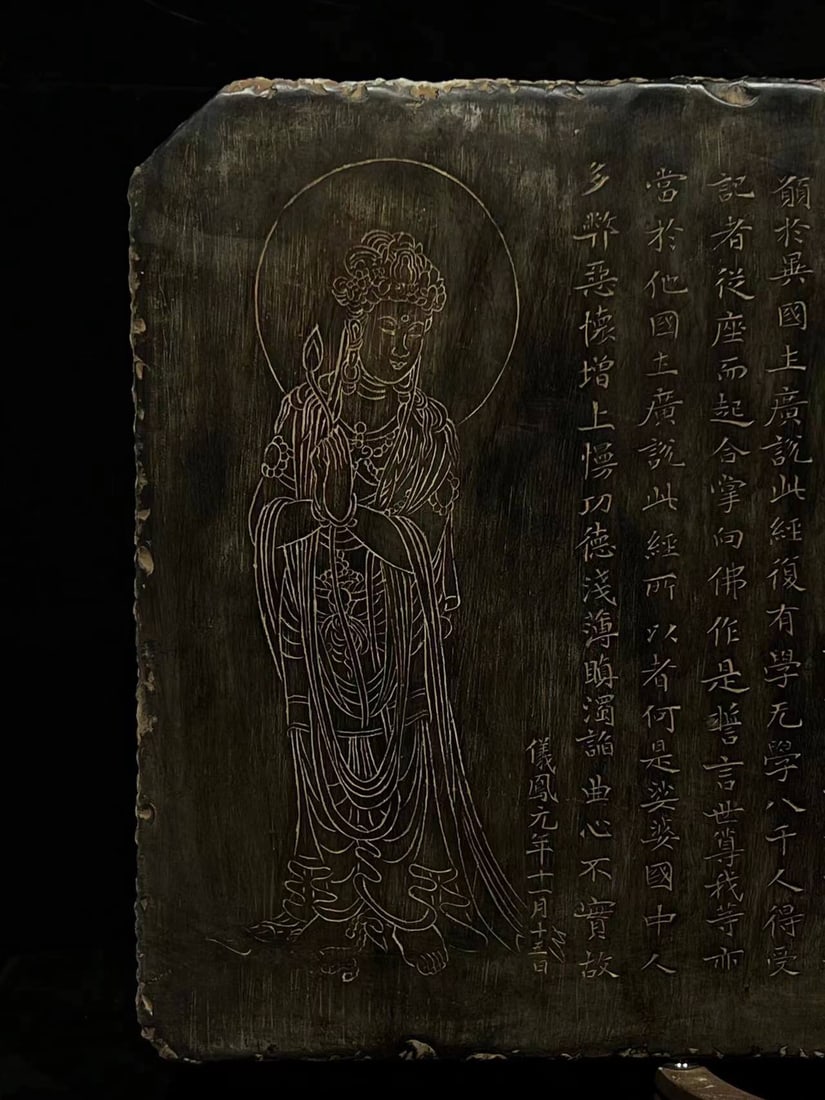 願於異國土廣說此經復有學无學八千人得受
記者從座而起合掌向佛作是誓言世尊我等亦
當於他國土廣說此經所以者何是娑婆國中人
多弊惡懷增上慢功德淺薄瞋濁諂曲心不實故
儀鳳元年十一月十三日